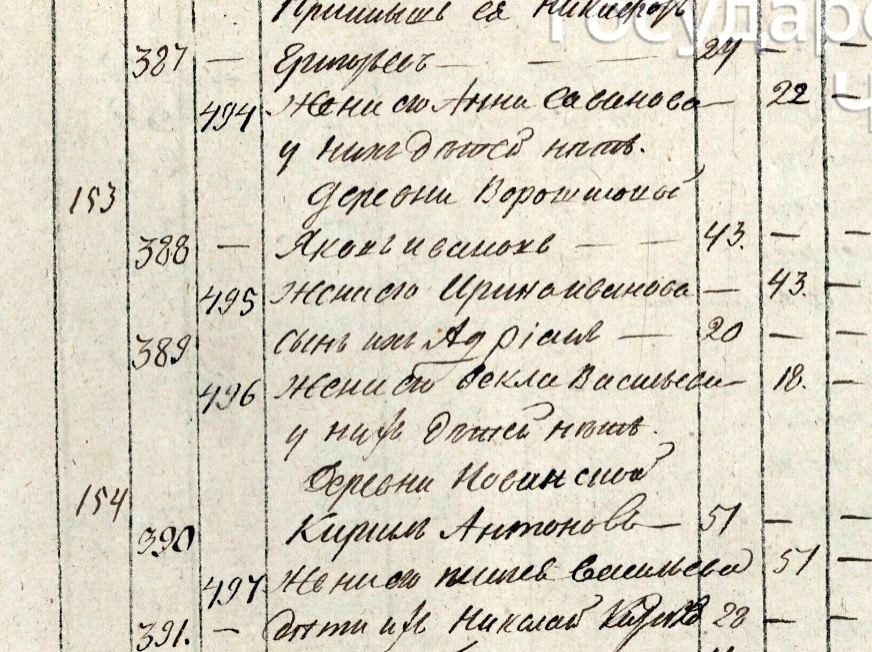 Приимышъ ея Никифоръ
387 — Григорьевъ — — — 24 — —
494 Жена его Анна Саванова — 22 —
у нихъ детей нетъ.
153 деревни Ворошиловы
388 — Яковъ ивановъ — — 43. — —
495 Жена его Ирина иванова — 43. —
389 сынъ ихъ Адріанъ — 20 — —
496 Жена его Фекла Васильева — 18. —
у нихъ детей нетъ.
154 деревни Новинской
390 Кирилъ Антоновъ — 51 — —
497 Жена его Васильева 51 —
391. — дети ихъ Николай 28 — —
Государс